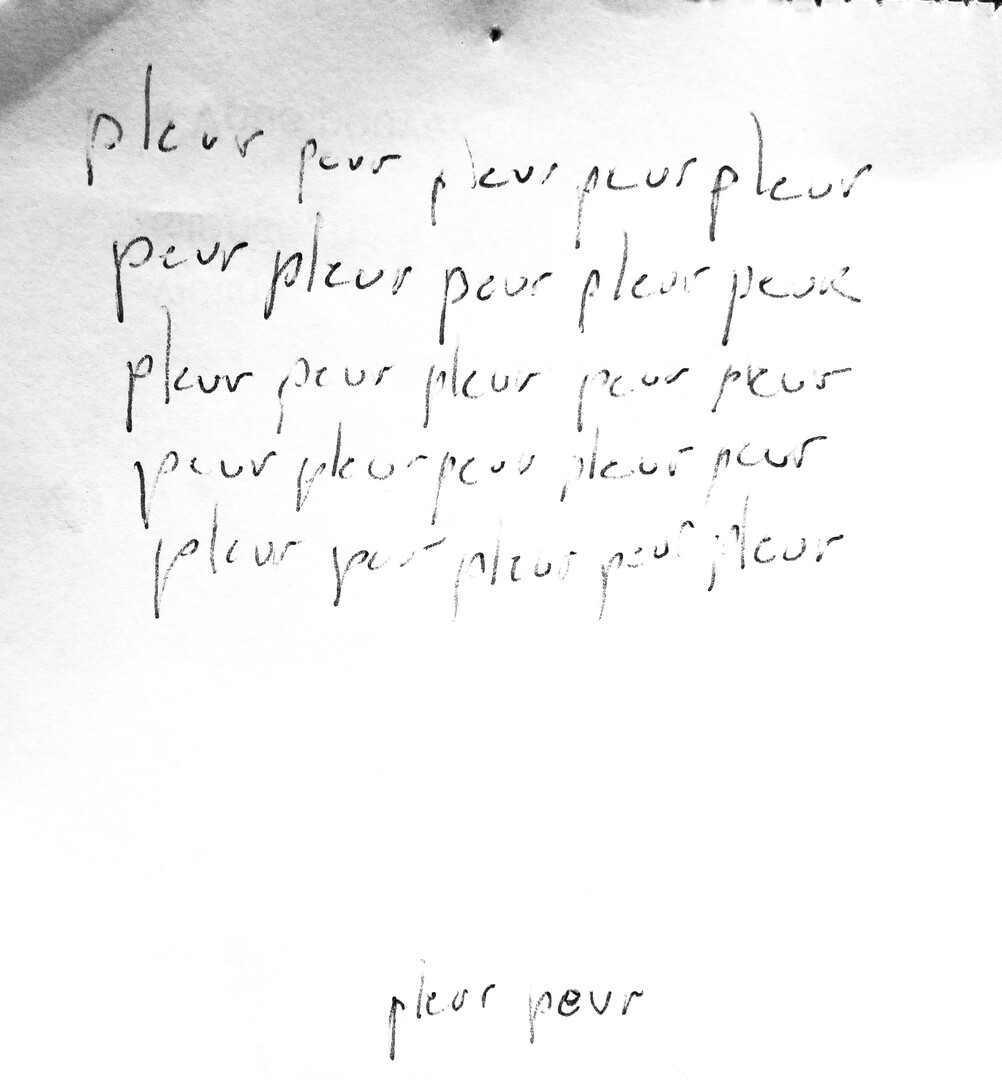 pleur peur pleur peur pleur
peur pleur peur pleur peur
pleur peur pleur peur pleur
peur pleur peur pleur peur
pleur peur pleur peur pleur
pleur peur